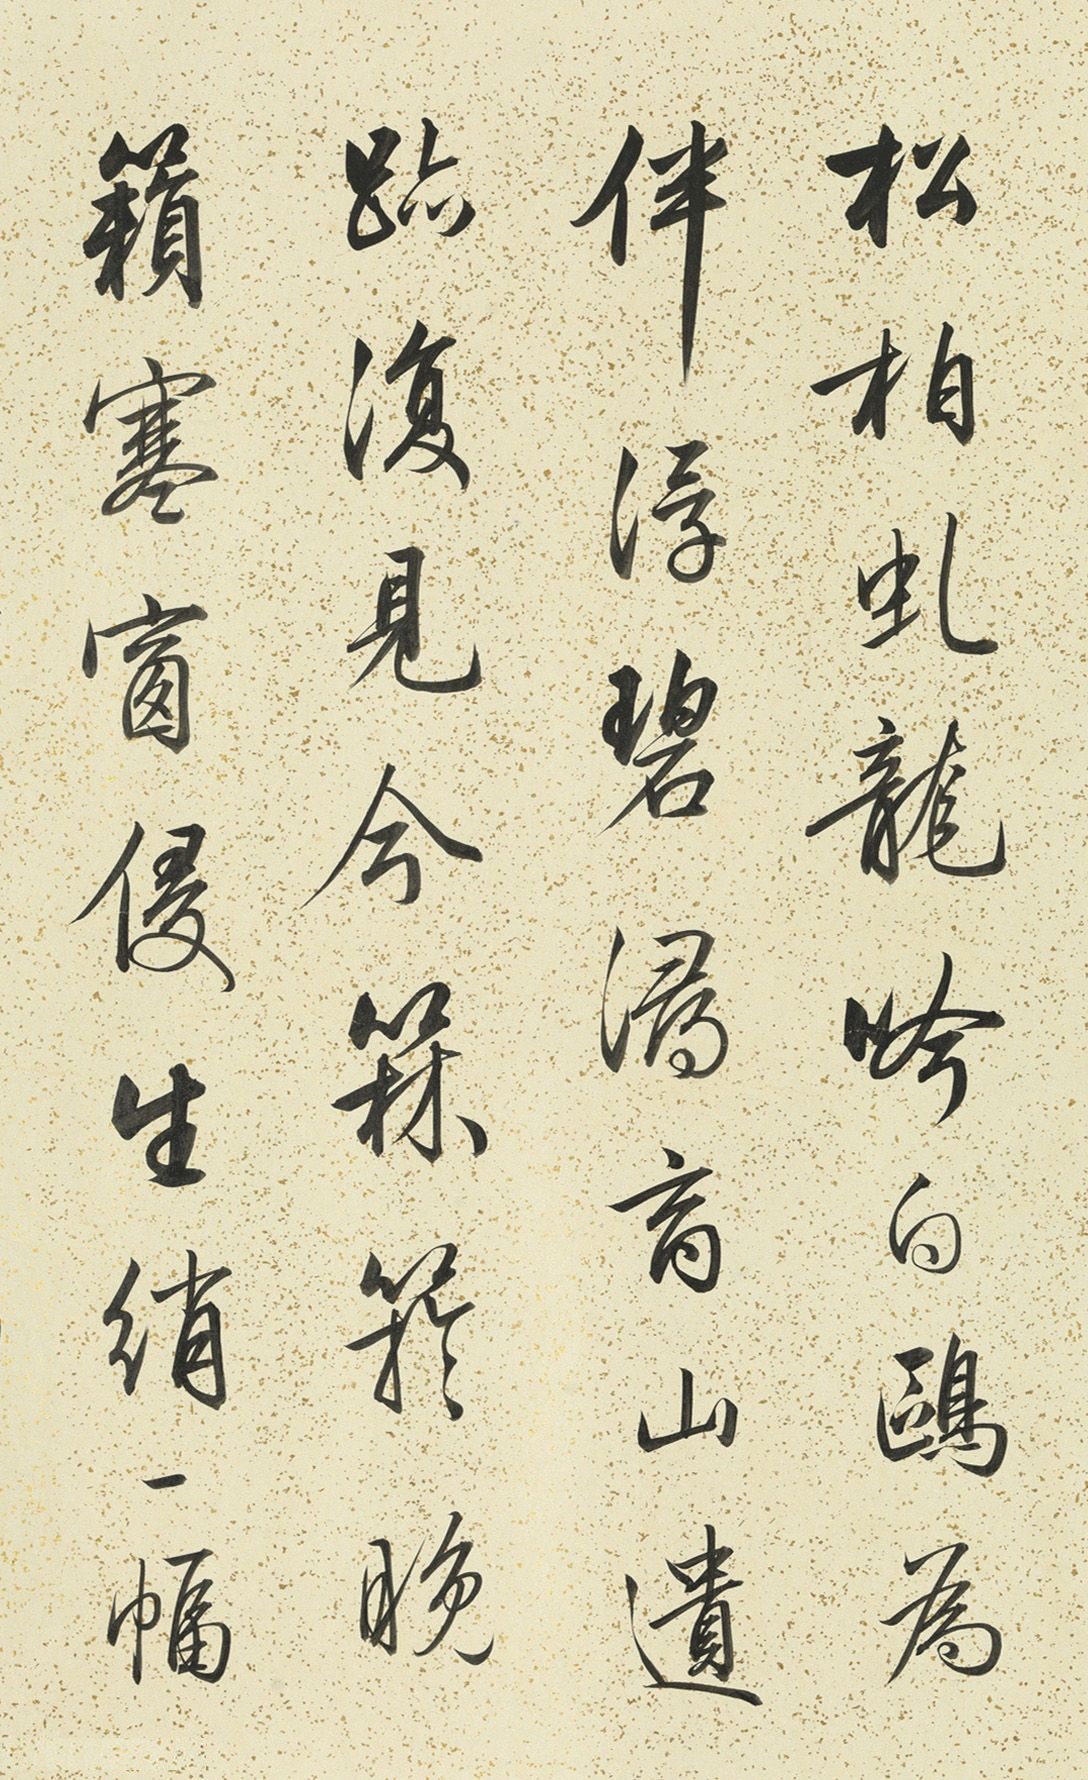 松柏虬龍吟白鷗為
伴浮碧育山遺
跡復見今箖箊晚
籟寒窗侵生綃一幅